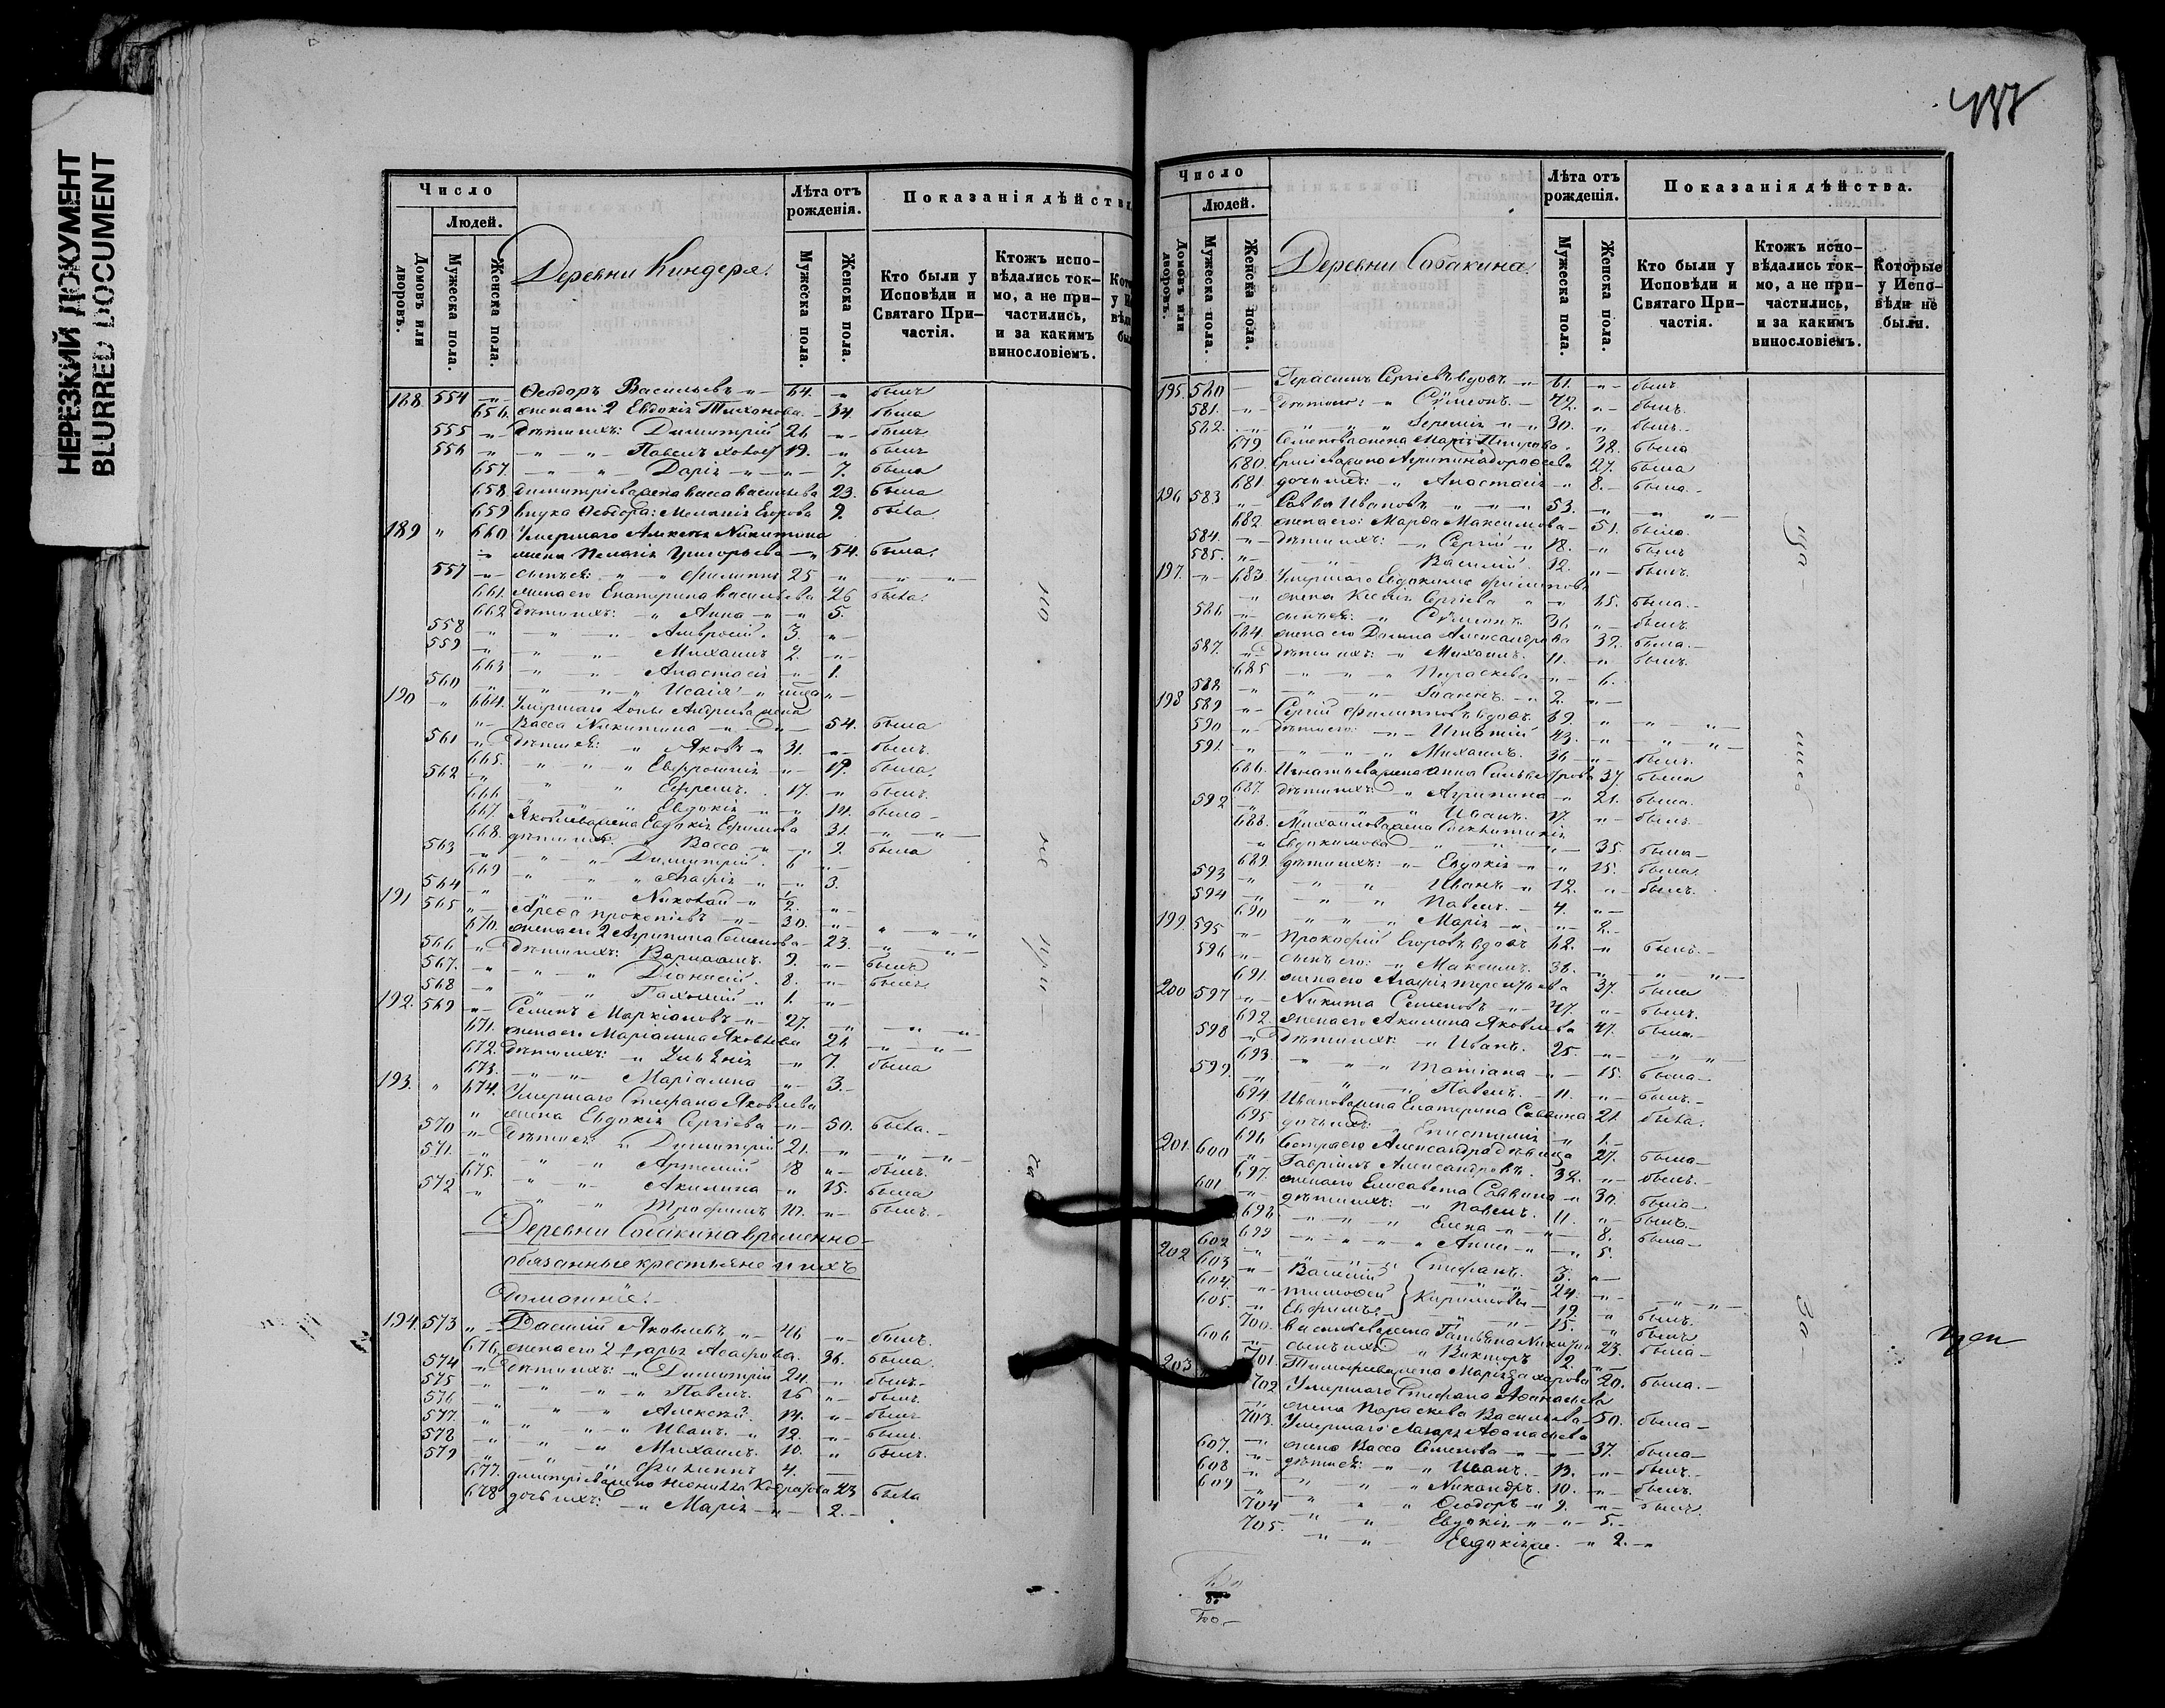 НЕРЕЗКИЙ ДОКУМЕНТ
BLURRED DOCUMENT
Число
Людей.
Домовъ или дворовъ.
Мужеска пола.
Женска пола.
Деревни Киндеря.
Лѣта отъ рожденія.
Мужеска пола.
Женска пола.
Показанія дѣйств
Кто были у Исповѣди и Святаго Причастія.
Ктожъ исповѣдались токмо, а не причастились, и за какимъ винословіемъ.
188. 554 Ѳеодоръ Васильевъ 64. былъ
656. жена его 2 Евдокія Тихонова. 34. была
555 дѣти ихъ: Димитрій 26 былъ
556 Павелъ холост 19. былъ
657. Дарія 7. была
658 Димитріева жена Васса Васильева 23. была
659 внука Ѳеодора: Меланія Егорова 9. была
189 660 Умершаго Алексѣя Никитина
жена Пелагія Григорьева 54. была.
557 сынъ ея: Филиппъ 25
661. жена его Екатерина Васильева 26 была.
662 дѣти ихъ: Анна 5.
558 Амвросій. 3.
559 Михаилъ 2.
663 Анастасія 1.
560 Исаія
190 664. Умершаго Андреева жена
Васса Никитина 54. была
561 дѣти ея: Яковъ 31. былъ.
665. Евфросинія 19. была.
562 Ефремъ. 17. былъ.
666 Евдокія 14. была
667. Яковлева жена Евдокія Ефимова 31.
668. дѣти ихъ: Васса 9. была
563 Димитрій. 6
669 Агафія 3.
564 Николай
191 565 Арефа Прокопіевъ 30.
670. жена его 2 Агрипина Семенова 23.
566 дѣти ихъ: Варлаамъ. 9. былъ
567. Діонисій. 8. былъ.
568 Пахомій 1.
192. 569 Семенъ Маркіановъ 27.
671. жена его Маріамна Яковлева 26
672. дѣти ихъ: 7. была
673. Маріамна 3.
193. 674. Умершаго Стефана Яковлева
жена Евдокія Сергіева 50. была.
570 дѣти ея: Димитрій 21.
571. Артемій 18 былъ.
675. Акилина 15. была
572 Трофимъ 10. былъ.
Деревни Собакина временно-
обязанные крестьяне и ихъ
домашніе.
194. 573 Василій Яковлевъ 46 былъ.
676. жена его 2 Дарья 36. была.
574 дѣти ихъ: Димитрій 24. былъ.
575 Павелъ. 16 былъ.
576 Алексѣй. 14. былъ
577. Иванъ. 12. былъ.
578 Михаилъ. 10. былъ.
579 Филиппъ 4.
677. Димитріева жена 23 была
678 дочь ихъ: Марія 2.
не
при
ча
Число
Людей.
Домовъ или дворовъ.
Мужеска пола.
Женска пола.
Деревни Собакина.
Лѣта отъ рожденія.
Мужеска пола.
Женска пола.
Показанія дѣйства.
Кто были у Исповѣди и Святаго Причастія.
Ктожъ исповѣдались токмо, а не причастились, и за какимъ винословіемъ.
Которые у Исповѣди не были.
195. 580 Герасимъ Сергіевъ вдовъ 61. былъ
581. дѣти его: Сѵмеонъ. 42. былъ.
582. Іеремія 30. былъ.
679. Семенова жена Марія Петрова 38. была
680. жена Агрипина Дороѳеева 27. была
681. дочь ихъ: Анастасія 8. была.
196 583 Савва Ивановъ 53.
682. жена его: Марѳа Максимова 51. была.
584. дѣти ихъ: Сергій 18. былъ
585. Василій. 12. былъ.
197. 683 Умершаго Евдокима Филиппова
жена Ксенія Сергіева 65. была.
586 сынъ ея: Сѵмеонъ 36 былъ.
684. жена его Домна Александрова 32. была.
587. дѣти ихъ: Михаилъ. 11. былъ.
685 Параскева 6.
588 Іоаннъ 2.
198 589 Сергій Филипповъ вдовъ. 69.
590 дѣти его: Игнатій 43.
591. Михаилъ. 36 былъ.
686. Игнатьева жена Анна Сильвестрова 37. была
687. дѣти ихъ: Агрипина 21. была.
592 Иванъ. 17. былъ.
688. Михайлова жена
Евдокимова 35. была
689. дѣти ихъ: Евдокія 15. была.
593 Иванъ 12. былъ.
594 Павелъ. 4.
690 Марія 2.
199 595 Прокофій Егоровъ вдовъ 62. былъ.
596 сынъ его: Максимъ. 38.
691. жена его Агафія Терентьева 37. была
200 597 Никита Семеновъ 47. былъ.
692. жена его Акилина Яковлева 47. была.
598 дѣти ихъ: Иванъ. 25.
693. Татіана 15. была
599. Павелъ. 11. былъ.
694 Иванова жена Екатерина Саввина 21. была.
695 дочь ихъ: Епистимія 1.
696. Сестра его Александра дѣвица 27. была
201 600 Гавріилъ Александровъ. 32. былъ.
697. жена его Елисавета Саввина 30. была
601 дѣти ихъ: Павелъ. 11. былъ.
698 Елена 8. была
699 Анна 5.
602 Стефанъ. 3.
202 603 Василій 24.
604. Тимоѳей Кириловы 19. былъ.
605. Евфимъ. 15. былъ
700. Васильева жена Татьяна Никитина 23. была
606 сынъ ихъ Викторъ 2.
701. Тимофеева жена Марія Захарова 20. была.
203 702 Умершаго Стефана Аѳанасьева
жена Параскева Васильева 50. была
703. Умершаго Лазаря Аѳанасьева
жена Васса Семенова 37. была
607. дѣти ея: Иванъ. 13. былъ.
608 Никандръ. 10. былъ.
609 Ѳеодоръ 9. былъ.
704 Евдокія 5.
705. Евдокія же. 2.
за